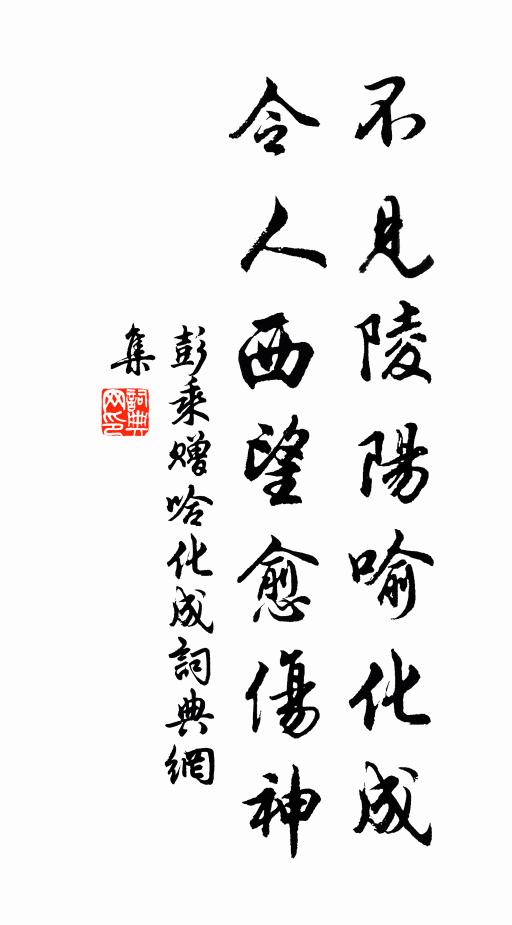 不見陵陽喻化成
令人西望愈傷神
彭乘贈哈化成詞典網
集
詞典
网印